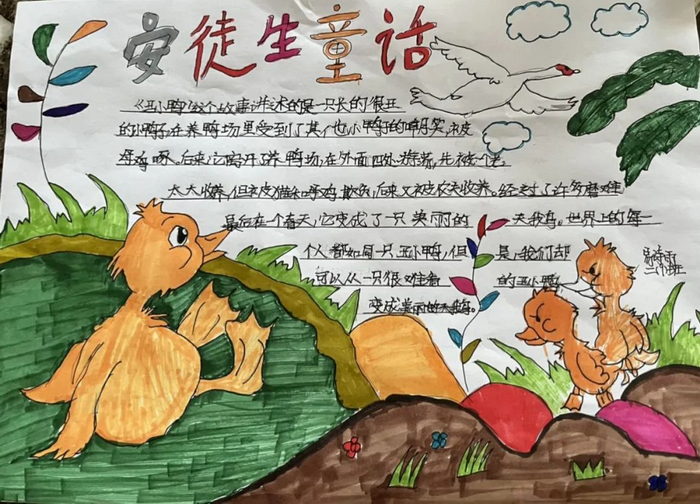 安徒生童话
《丑小鸭》这个故事讲术的是一只长的很丑
的小鸭子在养鸭场里受到了其他小鸭子的嘲笑、被
母鸡啄。后来它离开了养鸭场，在外面四处游荡，先被一老
太太收养，但被猫和母鸡欺负，后来又被农夫收养。经过了许多磨难
最后在一个春天，它变成了一只美丽的天我鸟。世界上的每一
个人都如同一只丑小鸭，但是，我们却
可以从一只很难看的丑小鸭
变成美丽的天鹅。